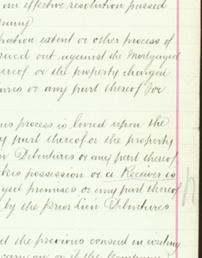 an effective resolution passed
pany
bration extent or other process of
sued out against the Mortgaged
hereof or the property charged
tures or any part thereof for
ous process is levied upon the
y part thereof or the property
Debentures or any part thereof
takes possession or a Receiver is
ged premises or any part thereof
by the Prior Lien Debentures
ut the previous consent in writing
carry on or if the Company